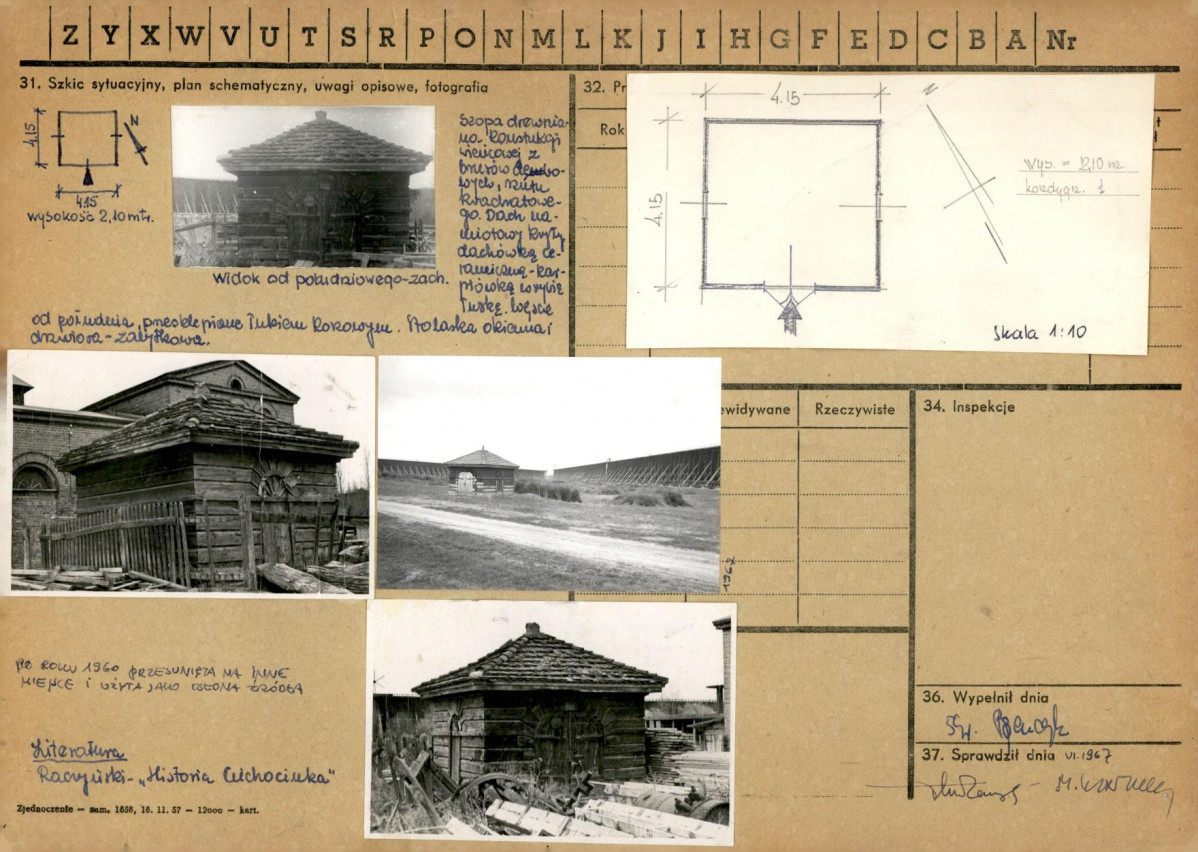 Z Y X W V U T S R P O N M L K J I H G F E D C B A Nr
31. Szkic sytuacyjny, plan schematyczny, uwagi opisowe, fotografia
4.15
N
4.15
wysokość 2,10 mtr.
Widok od południowego-zach.
Szopa drewnia-
na. Konstukcji
wieńcowej z
kwadratowe-
go. Dach na-
miotowy kryty
dachówką ce-
ramiczną-kar-
piówką w rybią
łuskę. Wejście
od południa, przesklepione łukiem koszowym. Stolarka okienna i
drzwiowa - zabytkowa.
32. Pr
Rok
4.15
4.15
N
wys. = 2,10 m
kondygn. 1
Skala 1:10
ewidywane
Rzeczywiste
34. Inspekcje
1967
PO ROKU 1960 PRZESUNIĘTA NA INNE
MIEJSCE I UŻYTA JAKO ŹRÓDŁA
Literatura
Raczyński - „Historia Ciechocinka"
Zjednoczenie — zam. 1658, 16. 11. 57 — 12000 — kart.
36. Wypełnił dnia
37. Sprawdził dnia VI.1967